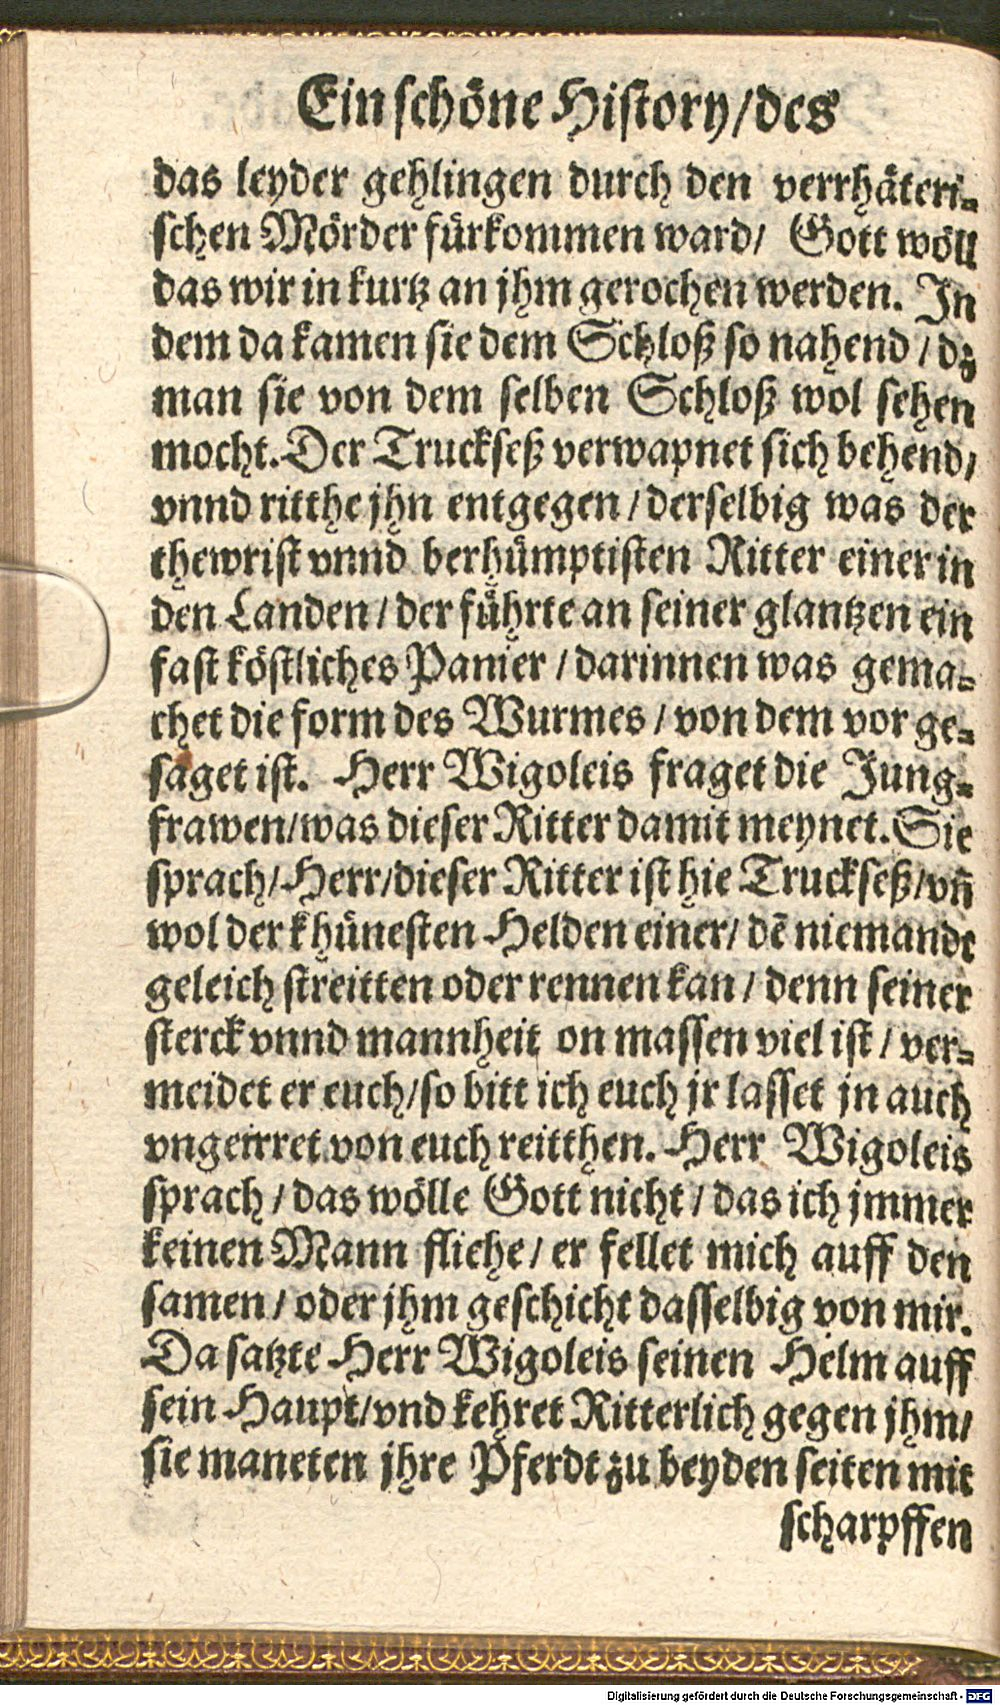 Ein schöne History/des
das leyder gehlingen durch den verrhäteri-
schen Mörder fürkommen ward/ Gott wöll
das wir in kurtz an jhm gerochen werden. In
dem da kamen sie dem Schloß so nahend / dz
man sie von dem selben Schloß wol sehen
mocht. Der Truckseß verwapnet sich behend/
vnnd ritthe jhn entgegen / derselbig was der
thewrist vnnd berhümptisten Ritter einer in
den Landen / der führte an seiner glantzen ein
fast köstliches Panier / darinnen was gema-
chet die form des Wurmes / von dem vor ge-
saget ist. Herr Wigoleis fraget die Jung-
frawen/was dieser Ritter damit meynet. Sie
sprach/Herr/dieser Ritter ist hie Truckseß/vñ
wol der khünesten Helden einer/ dẽ niemandt
geleich streitten oder rennen kan / denn seiner
sterck vnnd mannheit on massen viel ist / ver-
meidet er euch/so bitt ich euch jr lasset jn auch
vngeirret von euch reitthen. Herr Wigoleis
sprach / das wölle Gott nicht / das ich jmmer
keinen Mann fliehe / er fellet mich auff den
samen / oder jhm geschicht dasselbig von mir.
Da satzte Herr Wigoleis seinen Helm auff
sein Haupt/vnd kehret Ritterlich gegen jhm/
sie maneten jhre Pferdt zu beyden seiten mit
scharpffen
Digitalisierung gefördert durch die Deutsche Forschungsgemeinschaft - DFG